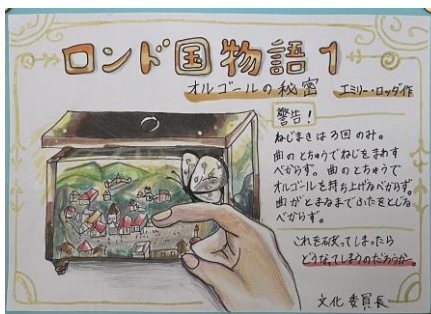 ロンド国物語1
オルゴールの秘密 エミリー・ロッダ作
警告!
ねじまきは3回のみ。
曲のとちゅうでねじをまわす
べからず。曲のとちゅうで
オルゴールを持ち上げるべからず。
曲がとまるまでふたをとじる
べからず。
これを破ってしまったら
どうなってしまうのだろうか。
文化委員長